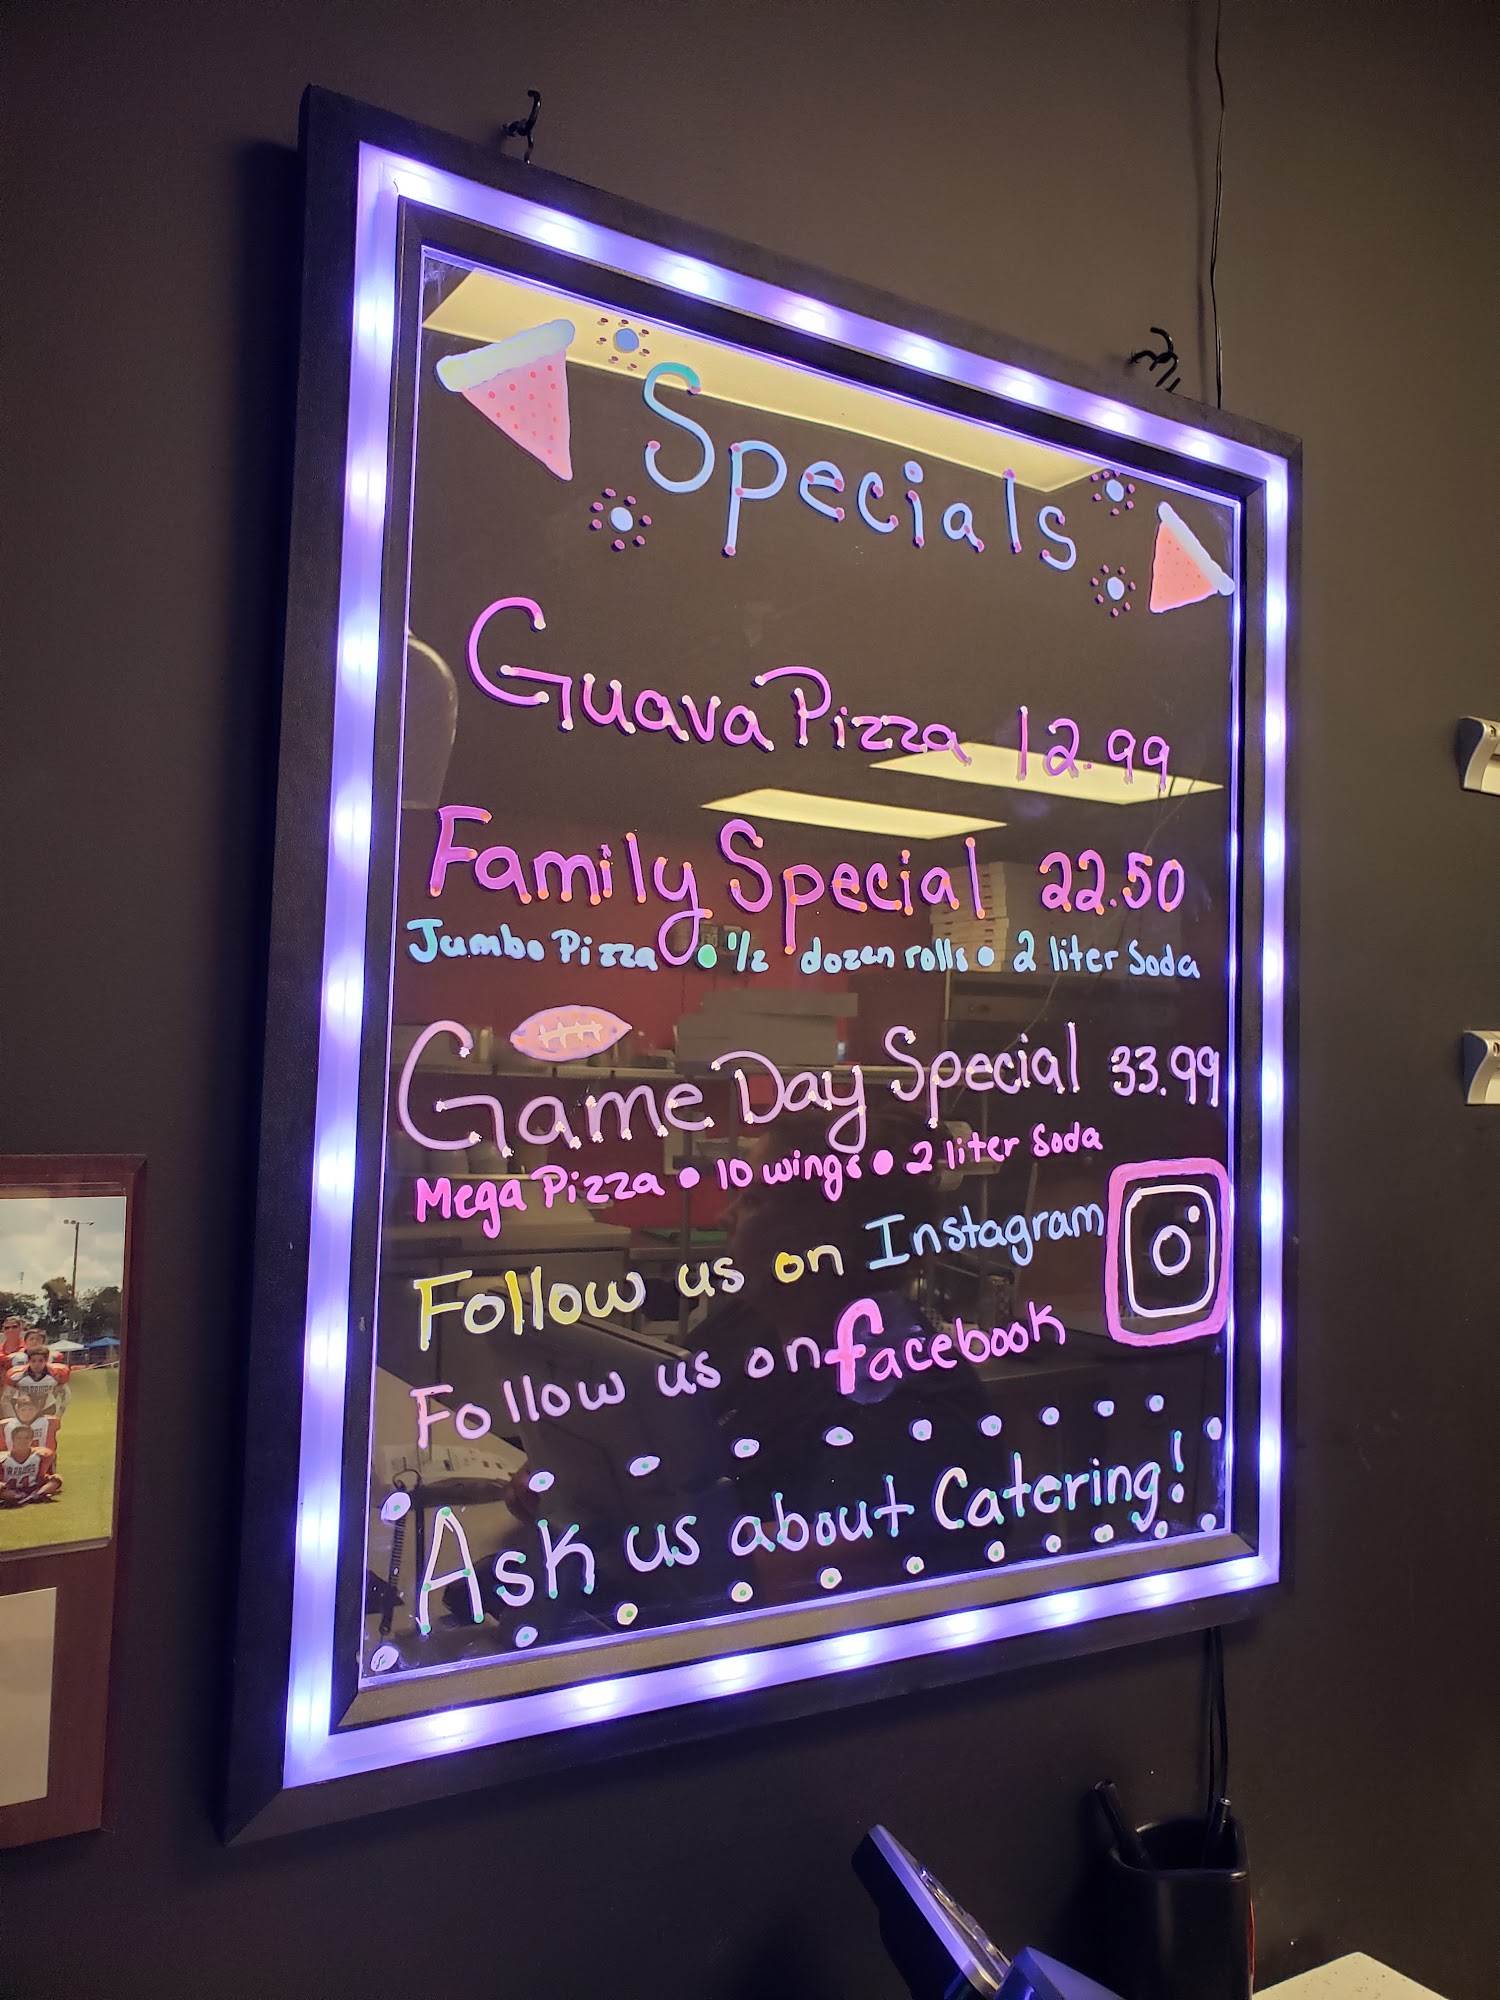 Specials
Guava Pizza 12.99
Family Special 22.50
Jumbo Pizza • 1/2 dozen rolls • 2 liter Soda
Game Day Special 33.99
Mega Pizza • 10 wings • 2 liter Soda
Follow us on Instagram
Follow us on facebook
Ask us about Catering!